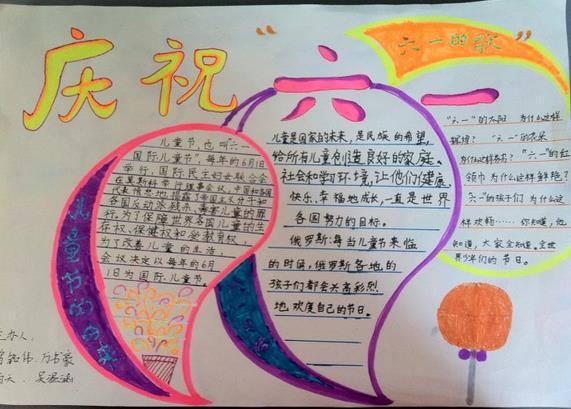 庆祝“六一”
儿童节,也叫六一
国际儿童节”每年的6月1日
举行,国际民主妇女联合会
在莫斯科举行理事会议,中国和各国
代表愤怒地揭露了帝国主义分子和
各国反动派残杀、毒害儿童的罪
行。为了保障世界各国儿童的生
存权、保健权和受教育权,
为了改善儿童的生活,
会议决定以每年的6月
1日为国际儿童节。
儿童节的
儿童是国家的未来,是民族的希望,
给所有儿童创造良好的家庭。
社会和学习环境,让他们健康,
快乐、幸福地成长,一直是世界
各国努力的目标。
俄罗斯:每当儿童节来临
的时候,俄罗斯各地的
孩子们都会兴高彩烈
地欢度自己的节日。
六一的歌
“六一”的太阳 为什么这样
“六一”的衣
为什么这样 “六一”的红
领巾 为什么这样鲜艳?
六一”的孩子们 为什么这
样欢畅……你知道,他
知道,大家全知道,全世
界少年们的节日。
主办人: